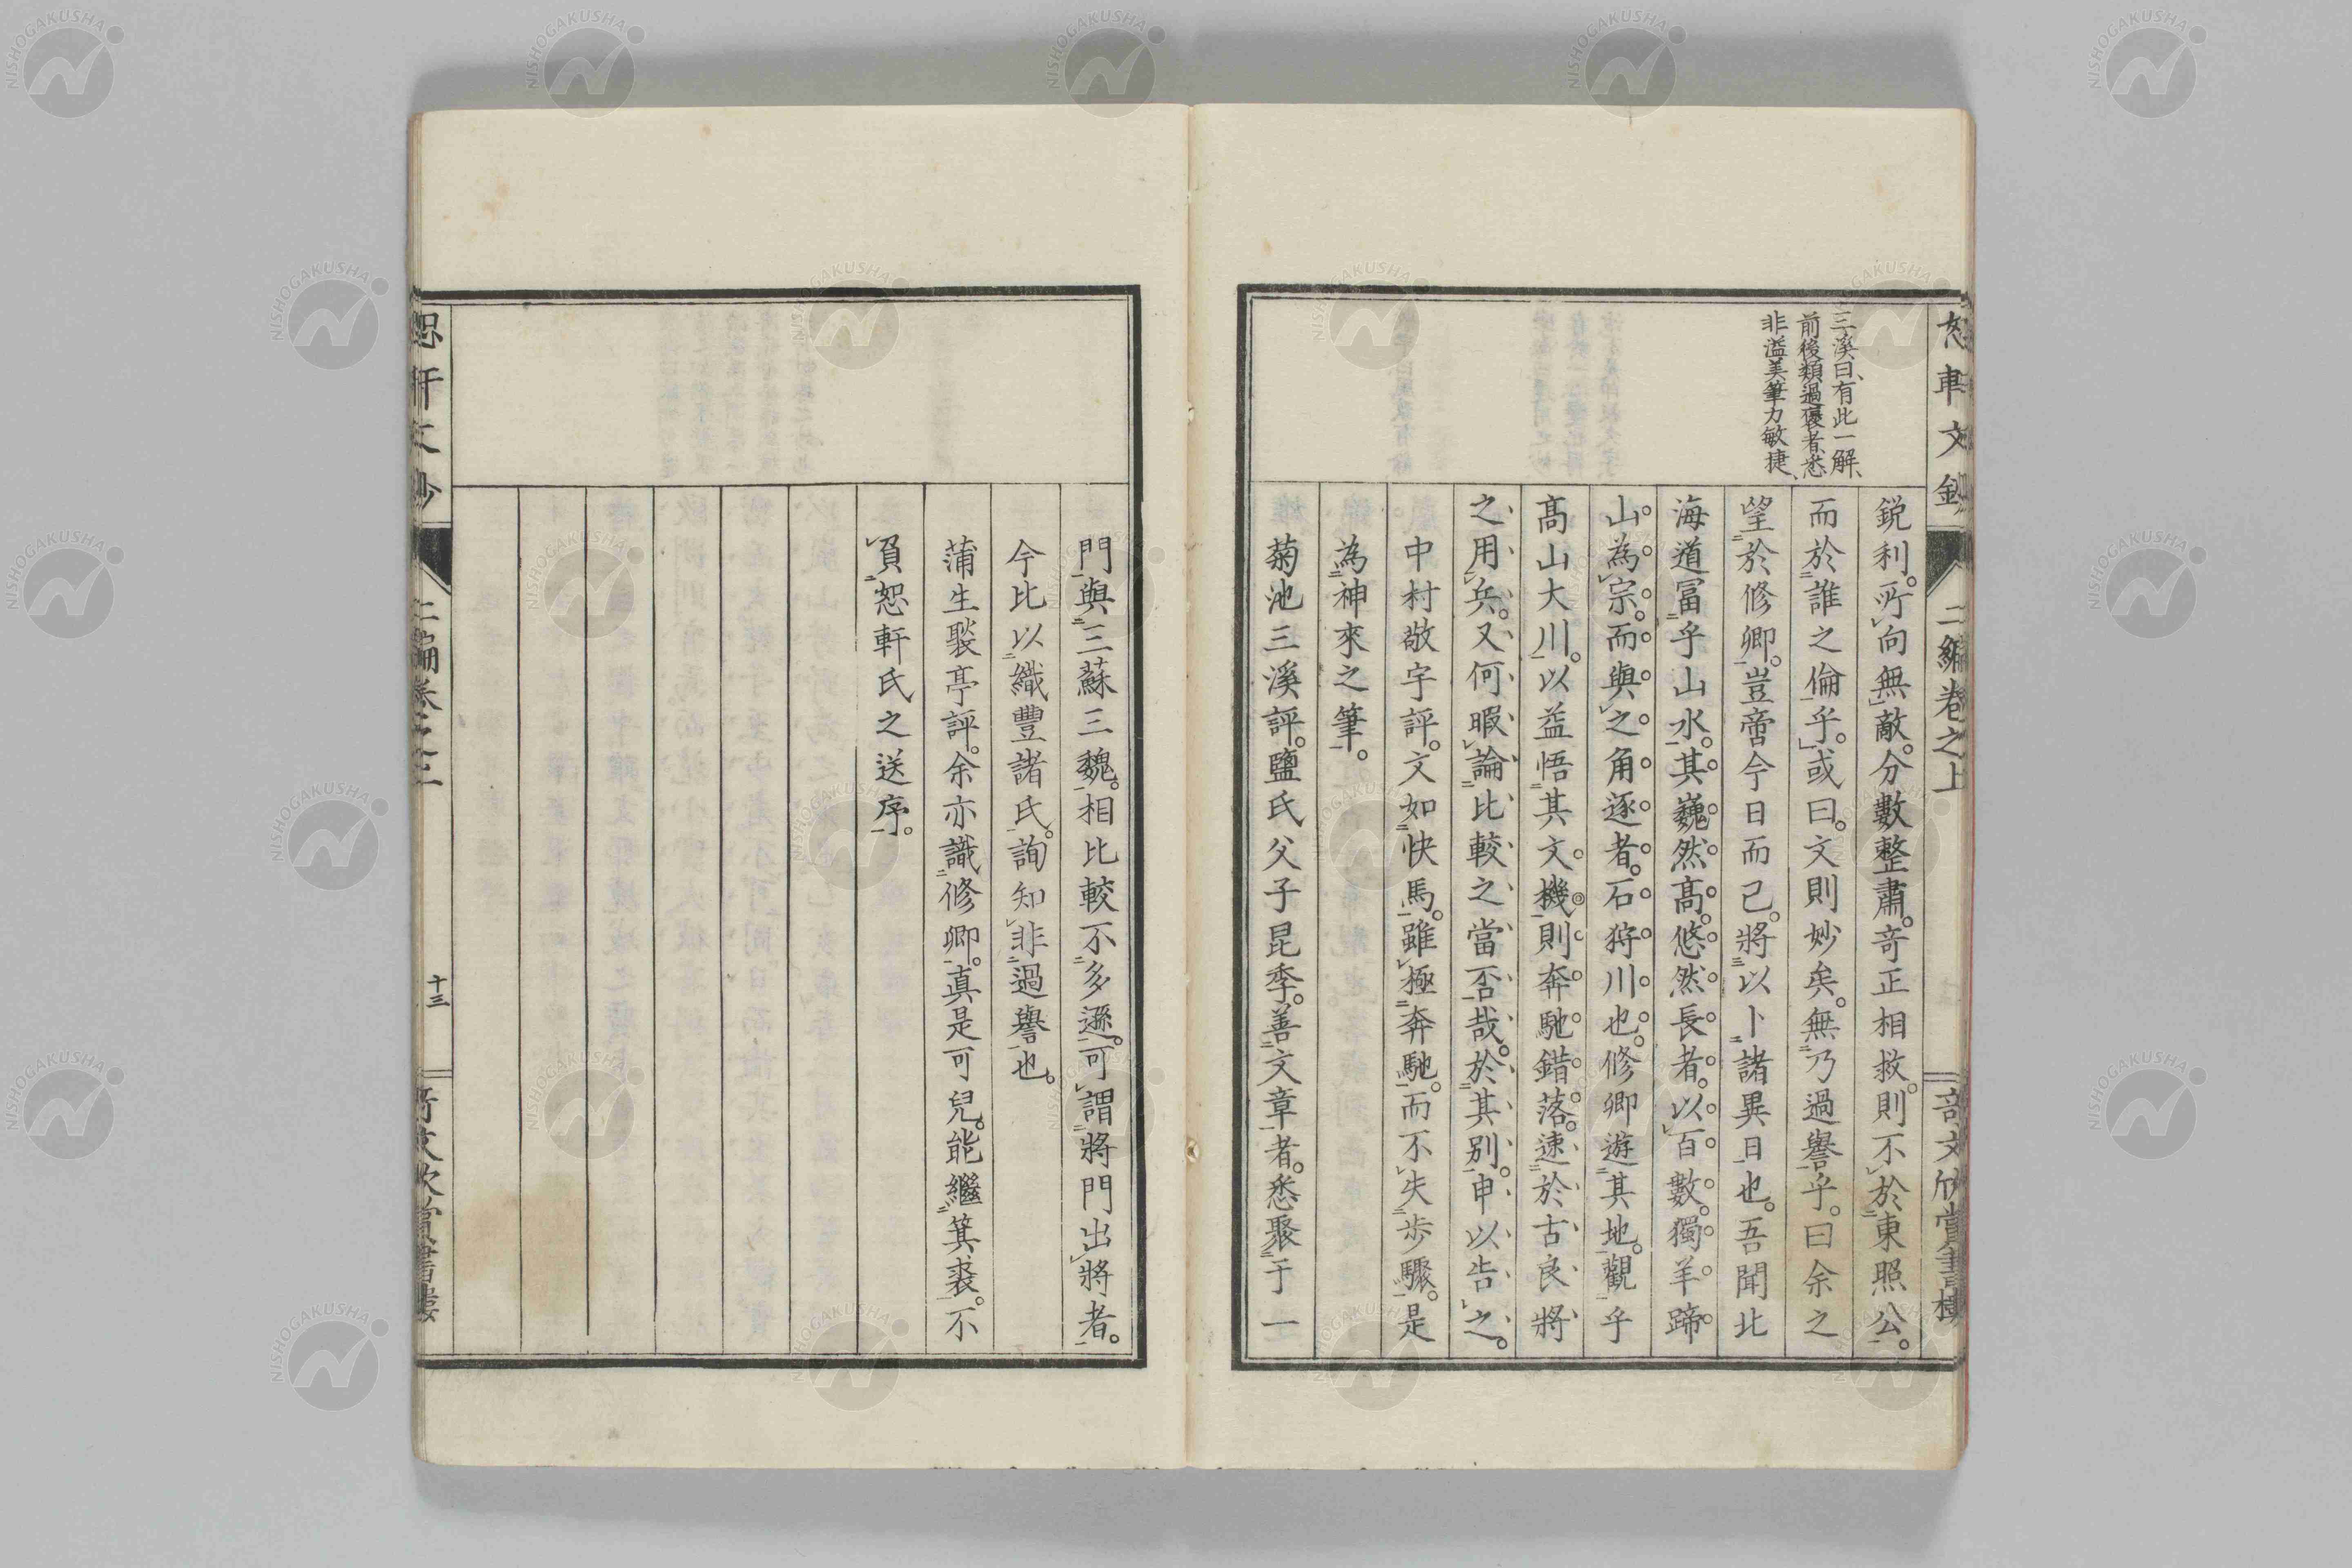 三溪曰、有此一解、
前後類過褒者、悉
非溢美筆力敏捷、
鋭利。所向無敵。分數整肅。奇正相救。則不於東照公。
而於誰之倫乎。或曰。文則妙矣。無乃過譽乎。曰余之
望於修卿。豈啻今日而已。將以卜諸異日也。吾聞北
海道冨乎山水。其巍然髙。悠然長者。以百數。獨羊蹄
山為宗。而與之角逐者。石狩川也。修卿遊其地。觀乎
髙山大川。以益悟其文機。則奔馳錯落。速於古良將
之用兵。又何暇論比較之當否哉。於其別。申以告之。
中村敬宇評。文如快馬。雖極奔馳。而不失歩驟。是
為神來之筆。
菊池三溪評。鹽氏父子昆季。善文章者。悉聚于一
二編卷之上
門與三蘇三魏。相比較不多遜。可謂將門出將者。
今比以織豐諸氏。詢知非過譽也。
蒲生褧亭評。余亦識修卿。真是可兒。能繼箕裘。不
負恕軒氏之送序。
十三
NISHOGAKUSHA